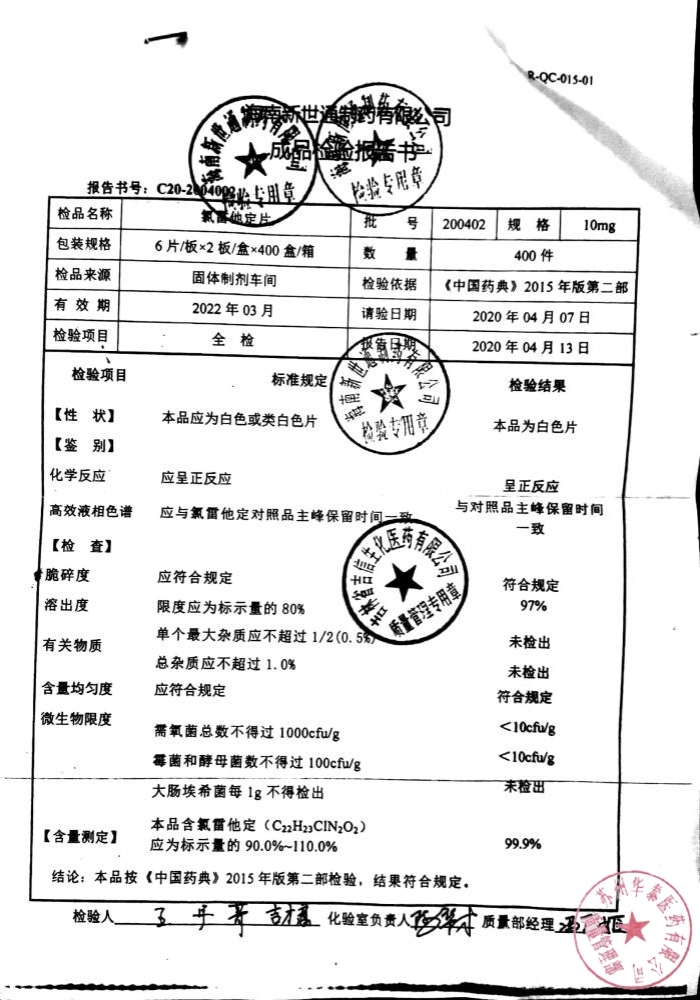 R-QC-015-01
海南新世通制药有限公司
成品检验报告书
报告书号：C20-2004002
检品名称 氯雷他定片 批 号 200402 规 格 10mg
包装规格 6片/板×2板/盒×400盒/箱 数 量 400件
检品来源 固体制剂车间 检验依据 《中国药典》2015年版第二部
有 效 期 2022年03月 请验日期 2020年04月07日
检验项目 全 检 报告日期 2020年04月13日
检验项目 标准规定 检验结果
【性 状】 本品应为白色或类白色片 本品为白色片
【鉴 别】
化学反应 应呈正反应 呈正反应
高效液相色谱 应与氯雷他定对照品主峰保留时间一致 与对照品主峰保留时间
一致
【检 查】
脆碎度 应符合规定 符合规定
溶出度 限度应为标示量的80% 97%
有关物质 单个最大杂质应不超过1/2(0.5%) 未检出
总杂质应不超过1.0% 未检出
含量均匀度 应符合规定 符合规定
微生物限度
需氧菌总数不得过1000cfu/g <10cfu/g
霉菌和酵母菌数不得过100cfu/g <10cfu/g
大肠埃希菌每1g不得检出 未检出
【含量测定】 本品含氯雷他定（C₂₂H₂₃ClN₂O₂）
应为标示量的90.0%~110.0% 99.9%
结论：本品按《中国药典》2015年版第二部检验，结果符合规定。
检验人 化验室负责人 质量部经理
海南新世通制药有限公司
检验专用章
海南新世通制药有限公司
检验专用章
海南新世通制药有限公司
检验专用章
吉林省吉信生化医药有限公司
质量管理专用章
苏州华泰医药有限公司